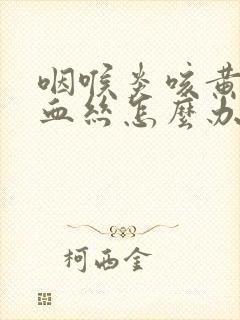 咽喉炎咳黄
血丝怎麽办
柯西金